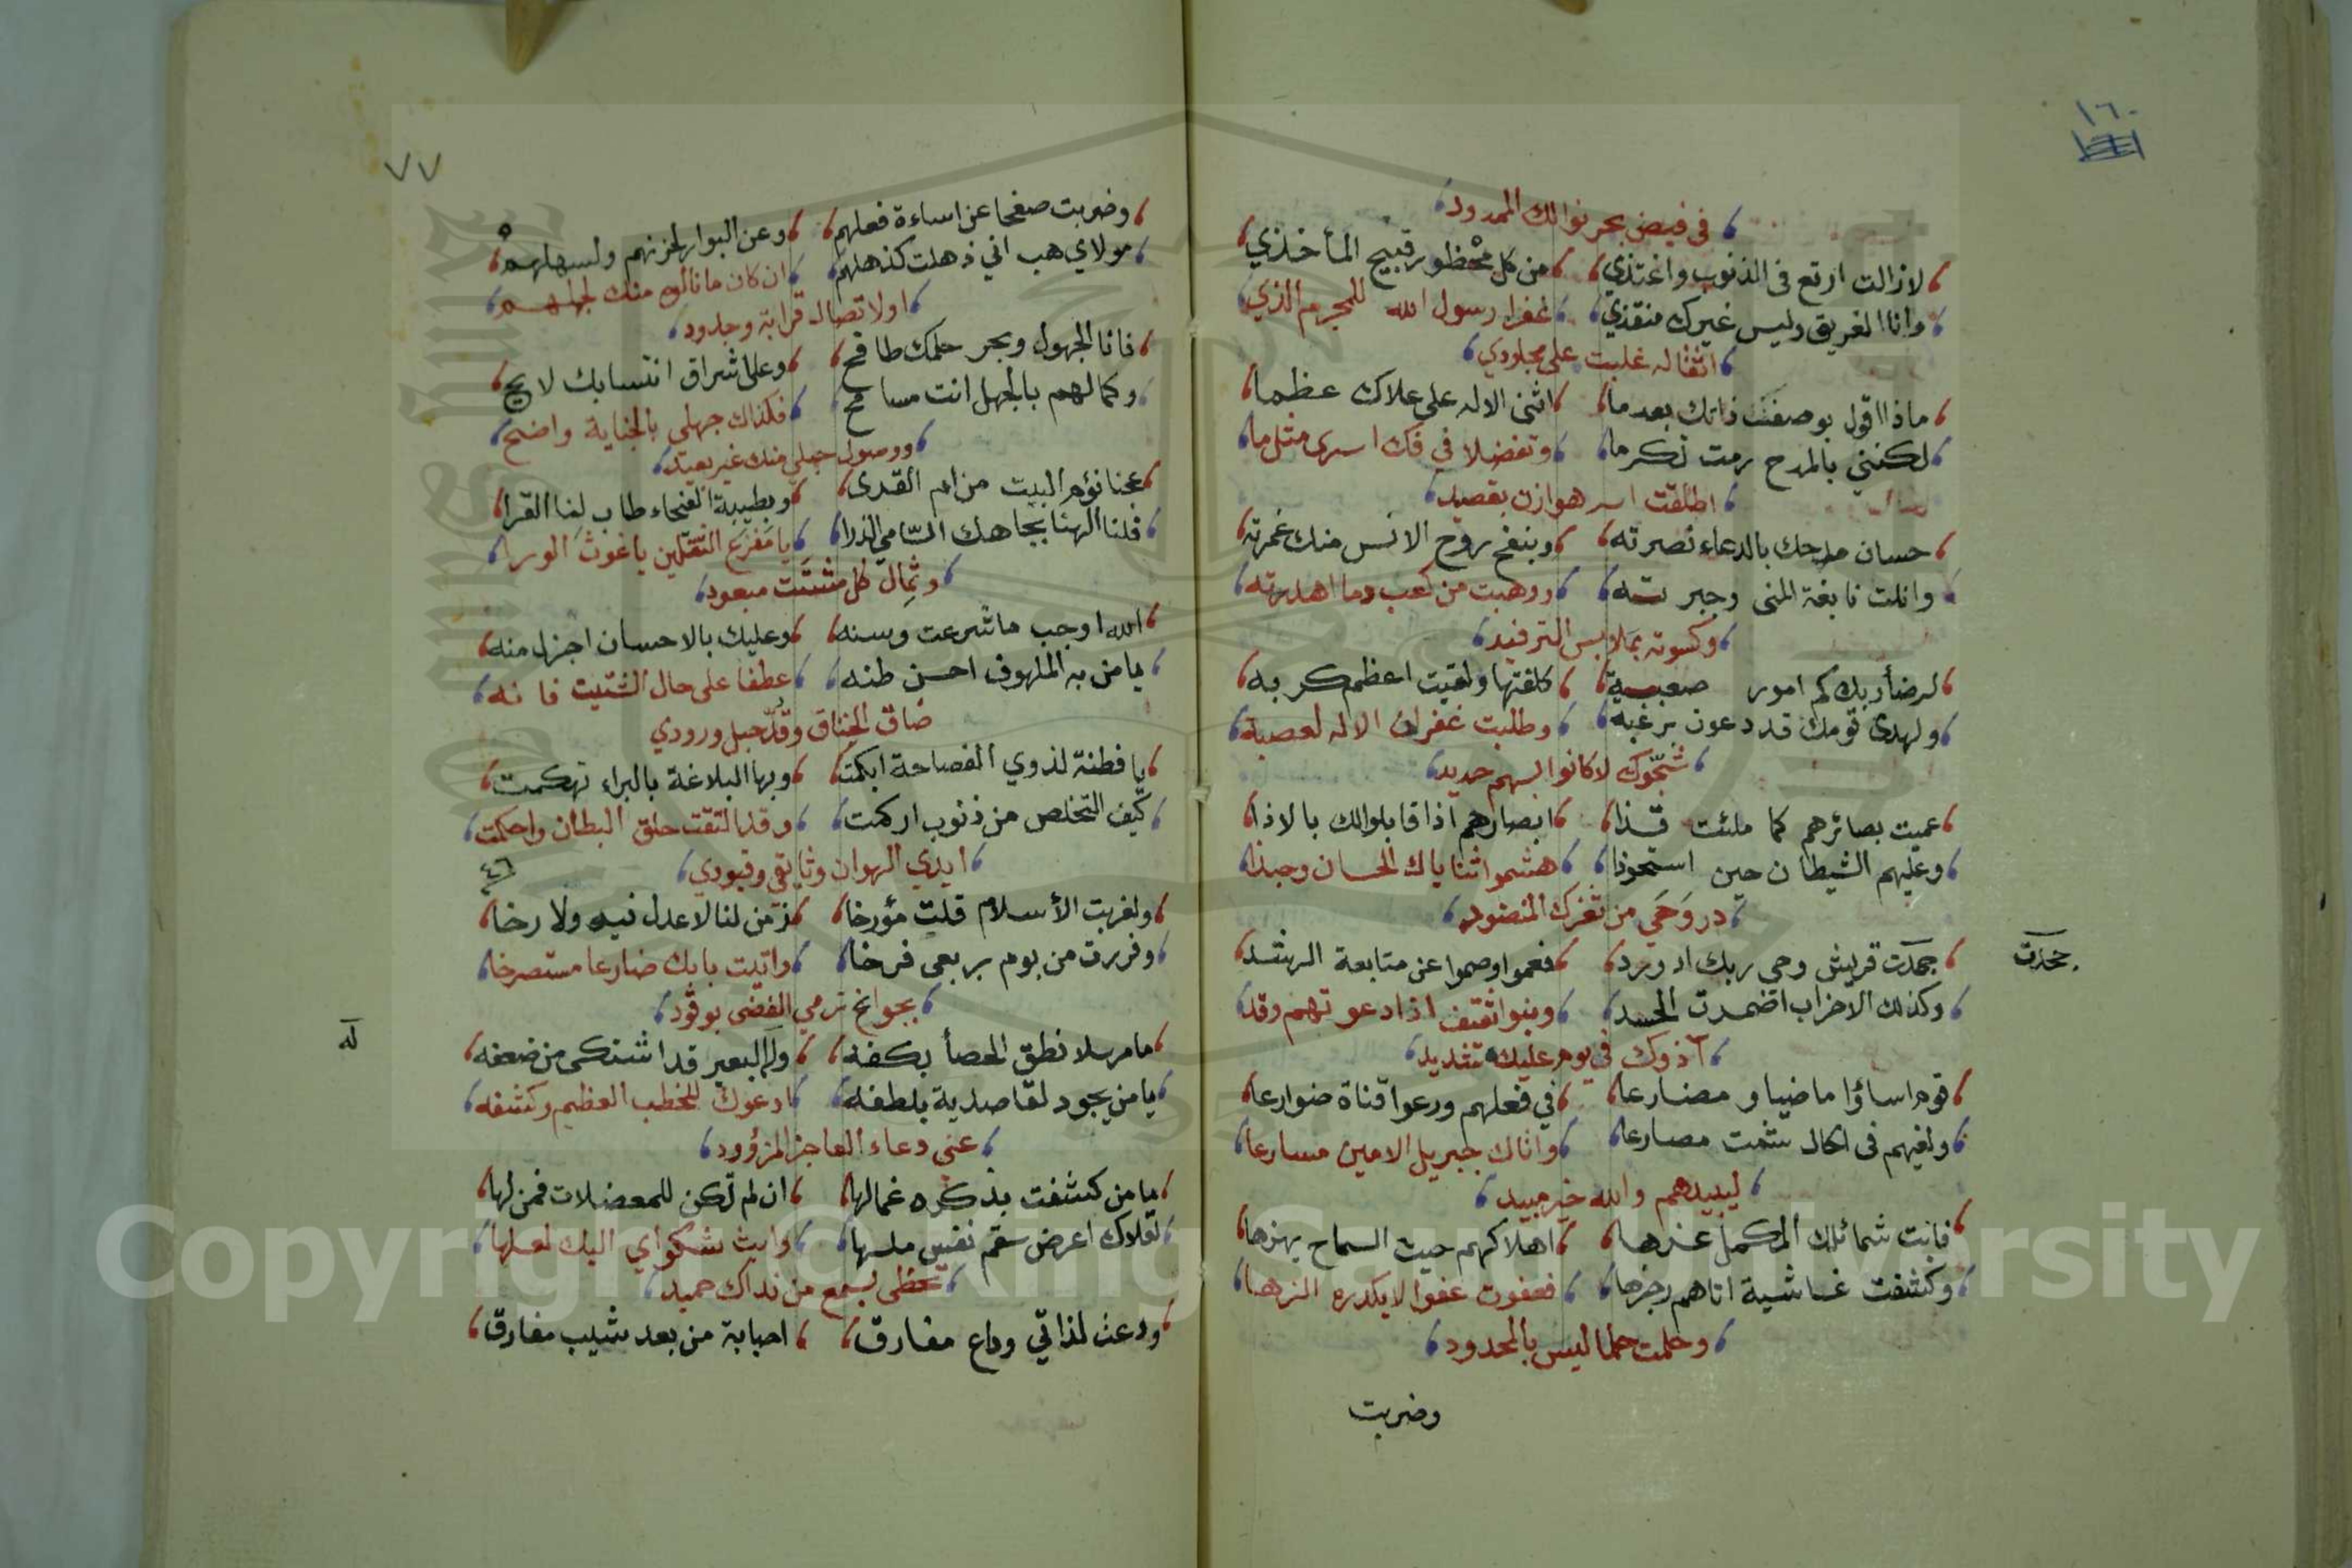 ١٦٠
في فيض بحر نوالك الممدود
لازالت ارتع في الذنوب واغتذي من كل محظور قبيح المأخذي
وانا الغريق وليس غيرك منقذي غفرا رسول الله للمجرم الذي
اثقاله غلبت على مجلودي
ماذا اقول بوصف ذاتك بعدما اثنى الاله على علاك عظما
لكنني بالمدح رمت تكرما وتفضلا في فك اسرى مثل ما
اطلقت اسر هوازن بقصيد
حسان مدحك بالدعاء نصرته وبنفح روح الانس منك غمرته
وانلت نابغة المنى وجبرته ووهبت من كعب دما اهدرته
وكسوته بملابس الترفيد
لرضأ ربك كم امور صعبة كلفتها ولقيت اعظم كربه
ولهدى قومك قد دعون برغبه وطلبت غفران الاله لعصبة
شجّوك لا كانوا بسهم حديد
عميت بصائرهم كما ملئت قذا ابصارهم اذا قابلوالك بالاذا
وعليهم الشيطان حين استحوذا هشموا ثناياك الحسان وحبذا
در وَحَي من ثغرك المنضود
جحدت قريش وحي ربك اد ورد فعموا وصموا عن متابعة الرشد
جحدت
وكذلك الاحزاب اضمرت الحسد وبنو ثقيف اذا دعوتهم وقد
آذوك في يوم عليك شديد
قوم اساؤا ماضيا ومضارعا في فعلهم ودعوا قناة ضوارعا
ولغيهم في الحال شمت مصارعا واتاك جبريل الامين مسارعا
ليبيدهم والله خير مبيد
فابت شمائلك المكمل عزها اهلاكهم حيث السماح يهزها
وكشفت غاشية اتاهم رجزها فعفوت عفوا لا يكدره الزها
وحلمت حلما ليس بالمحدود
وضربت
٧٧
وضربت صفحا عن اساءة فعلهم وعن البوار لحزنهم ولسهلهم
مولاي هب اني ذهلت كذهلهم ان كان ما نالوه منك لجهلهم
اولا تصال قرابة وجدود
فانا الجهول وبحر حلمك طافح وعلى اشراق انتسابك لايح
وكما لهم بالجهل انت مسامح فكذاك جهلي بالجناية واضح
ووصول حبلي منك غير بعيد
عجنا نؤم البيت من ام القرى وبطيبة الفيحاء طاب لنا القرا
قلنا الهنا بجاهك السّامي الذرا يا مَفزَع الثقلين يا غوث الورا
وثِمال كل مشتت مبعود
الله اوجب ما شرعت وسنه وعليك بالاحسان اجزل منه
يا من به الملهوف احسن ظنه عطفا على حال الشتيت فانه
ضاق الخناق وقُدّ حبل ورودي
يا فطنة لذوي الفصاحة ابكمت وبها البلاغة بالبراء تهكمت
كيف التخلص من ذنوب اركمت وقد التقت حلق البطان واحكمت
ايدي الهوان وثايقي وقيودي
ولغربت الأسلام قلت مؤرخا زمن لنا لا عدل فيه ولا رخا
وفررت من بوم بربعي فرخا واتيت بابك ضارعا مستصرخا
بجوانح ترمي الفضى بوقود
ما مرسلا نطق الحصأ بكفه وله البعير قد اشتكى من ضعفه
له
يا من يجود لقاصديه بلطفه ادعوك للخطب العظيم وكشفه
عني دعاء العاجز المزؤود
يا من كشفت بذكره غمالها ان لم تكن للمعضلات فمن لها
لعلاك اعرض سقم نفس ملها وابث شكواي اليك لعلها
تحظى بسمع من نداك حميد
ودعت لذاتي وداع مفارق اصبابة من بعد شيب مفارق
Copyright © King Saud University